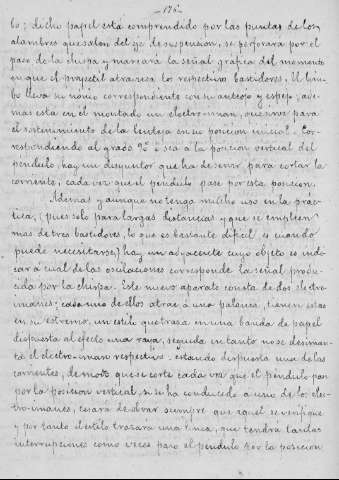 -176-
lo; dicho papel está comprendido por las puntas de los
alambres que salen del eje de suspension, se perforara por el
paso de la chispa y marcará la señal gráfica del momento
en que el proyectil atraviesa los respectivos bastidores. El lim-
bo lleva su nonio correspondiente con su anteojo y espejo, ade-
mas está en el montado un electro-iman, que sirve para
el sostenimiento de la lenteja en su posicion inicial. Cor-
respondiendo al grado 90 ó sea a la posicion vertical del
péndulo, hay un disyuntor que ha de servir para cortar la
corriente, cada vez que el péndulo pase por esta posicion.
Ademas y aunque no tenga mucho uso en la prác-
tica, (pues solo para largas distancias y que se empleen
mas de tres bastidores, lo que es bastante dificil, es cuando
puede necesitarse) hay un adyacente cuyo objeto es indi-
car á cual de las oscilaciones corresponde la señal produ-
cida por la chispa. Este nuevo aparato consta de dos electro-
imanes; cada uno de ellos atrae á una palanca, tienen estas
en su extremo, un estilo que traza en una banda de papel
dispuesta al efecto una raya, seguida en tanto no se desiman-
ta el electro-iman respectivo: estando dispuesta una de las
corrientes, de modo que se corte cada vez que el péndulo pase
por la posicion vertical, si se ha conducido a uno de los elec-
tro-imanes, cesará de obrar siempre que aquel se verifique
y por tanto el estilo trazará una linea, que tendrá tantas
interrupciones como veces pase el péndulo por la posicion